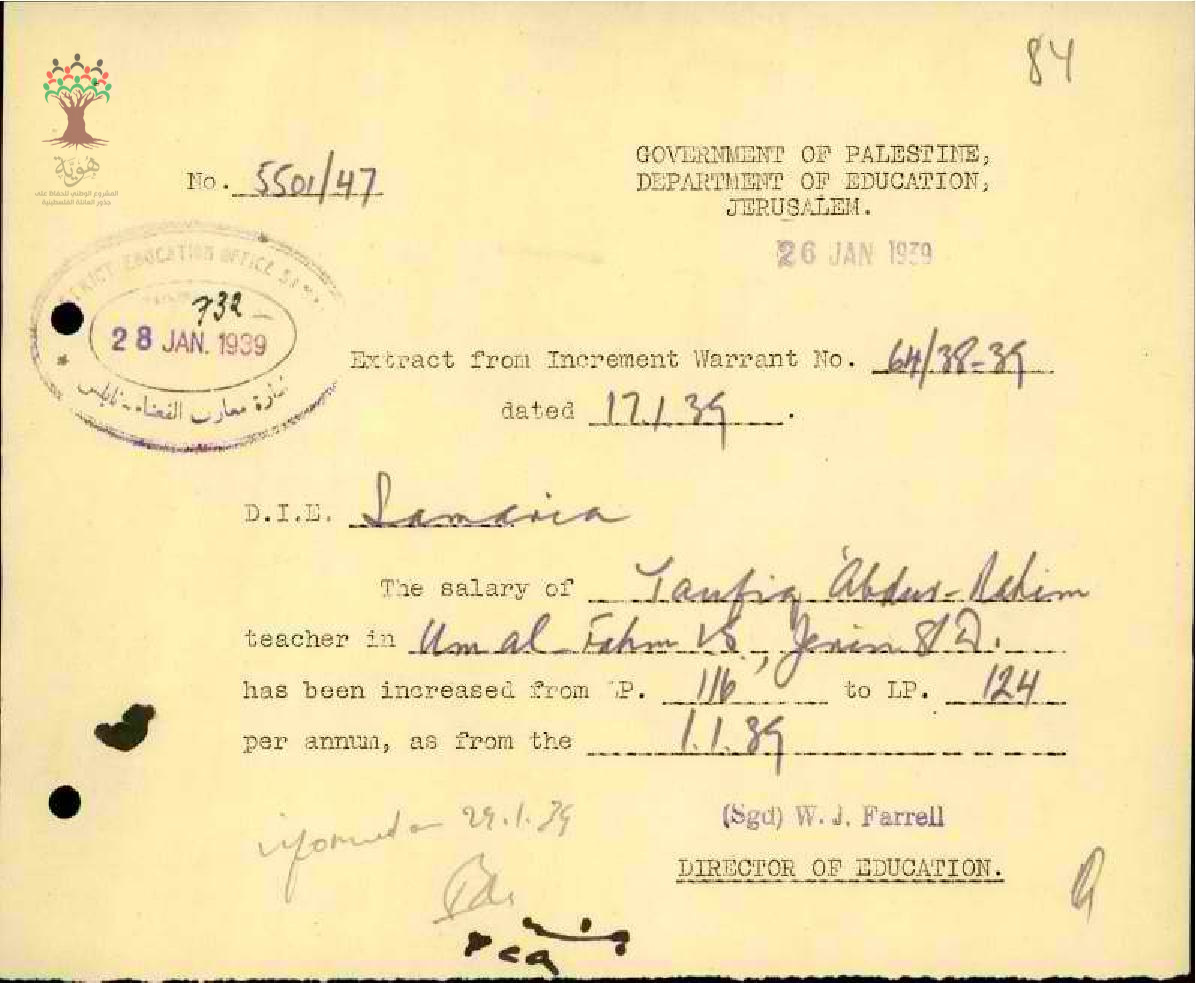 84
هُويّة
المشروع الوطني للحفاظ على
جذور العائلة الفلسطينية
No. 5501/47
GOVERNMENT OF PALESTINE,
DEPARTMENT OF EDUCATION,
JERUSALEM.
26 JAN 1939
EDUCATION OFFICE
732
28 JAN. 1939
Extract from Increment Warrant No. 64/38-39
dated 17.1.39.
D.I.E. Samaria
The salary of Taufiq 'Abdur-Rahim
teacher in Um al-Fahm VS, Jenin S/D.
has been increased from LP. 116 to LP. 124
per annum, as from the 1.1.39
informed on 29.1.39
(Sgd) W. J. Farrell
DIRECTOR OF EDUCATION.